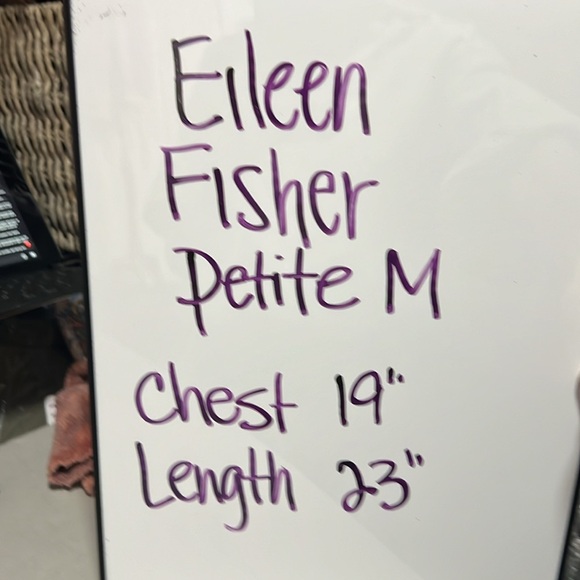 Eileen
Fisher
Petite M
Chest 19"
Length 23"